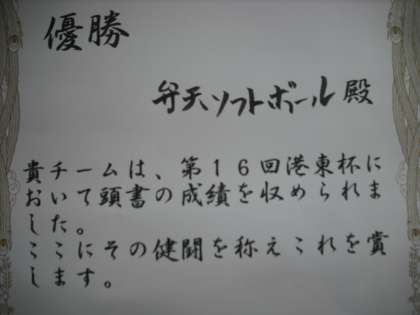 優勝
弁天ソフトボール殿
貴チームは、第１６回港東杯に
おいて頭書の成績を収められま
した。
ここにその健闘を称えこれを賞
します。